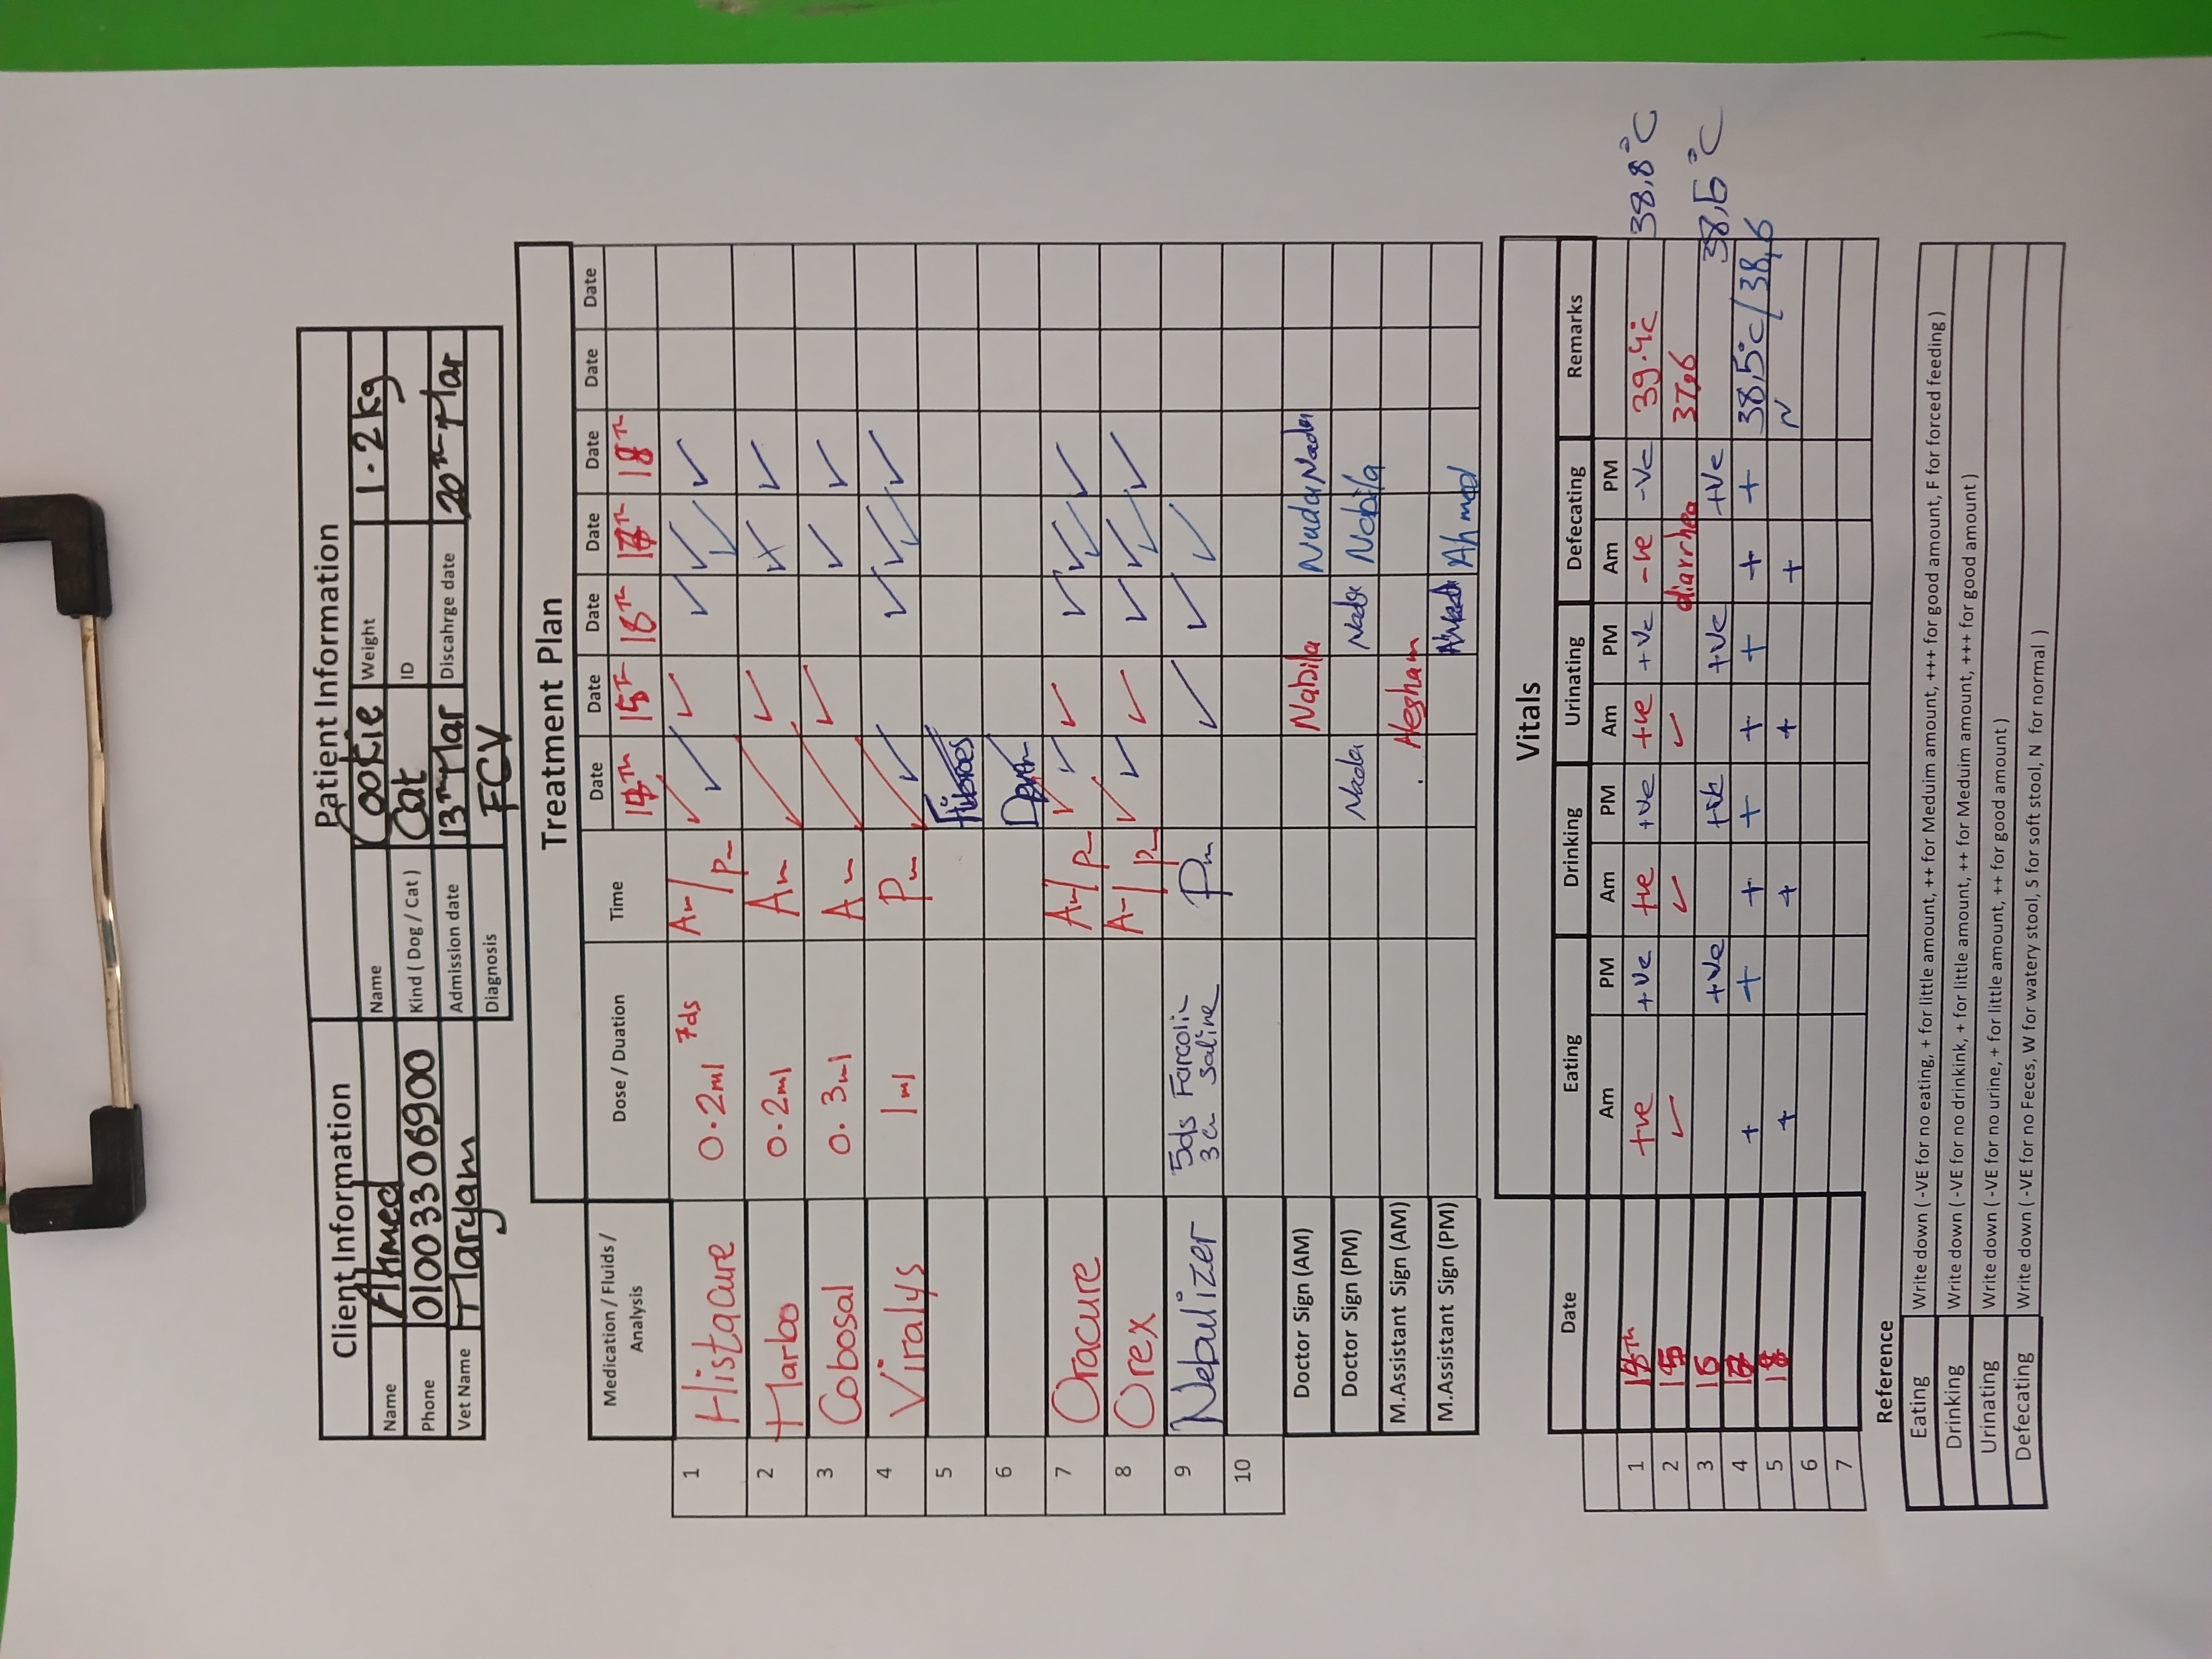 Client Information Patient Information
Name Ahmed Name Cookie Weight 1.2 kg
Phone 01003306900 Kind ( Dog / Cat ) Cat ID
Vet Name Maryam Admission date 13th Mar Discahrge date 20th Mar
Diagnosis FCV
Treatment Plan
Medication / Fluids / Analysis Dose / Duation Time Date Date Date Date Date Date Date
14th 15th 16th 17th 18th
1 Histacure 0.2ml 7ds Am/pm ✓ ✓ ✓ ✓ ✓ ✓ ✓
2 Marbo 0.2ml Am ✓ ✓ ✓
3 Cobosal 0.3ml Am ✓ ✓ ✓
4 Viralys 1ml Pm ✓ ✓ ✓ ✓ ✓
5
6
7 Oracure Am/p ✓ ✓ ✓ ✓ ✓ ✓ ✓
8 Orex Am/p ✓ ✓ ✓ ✓ ✓ ✓ ✓
9 Nebulizer 5ds Farcolin Pm ✓ ✓ ✓
3 cm saline
10
Doctor Sign (AM) Nabila Nada Nada
Doctor Sign (PM) Nada Nada Nabila
M.Assistant Sign (AM) Hesham
M.Assistant Sign (PM) Ahmed Ahmed
Vitals
Date Eating Drinking Urinating Defecating Remarks
Am PM Am PM Am PM Am PM
1 14th +ve +ve +ve +ve +ve +ve -ve -ve 39.4c 38,8°C
2 15 ✓ ✓ ✓ diarrhea 37,6
3 16 +ve +ve +ve +ve 38,5°C
4 17 + + + + + + + + 38,5°c / 38,6
5 18 + + + + N
6
7
Reference
Eating Write down ( -VE for no eating, + for little amount, ++ for Meduim amount, +++ for good amount, F for forced feeding )
Drinking Write down ( -VE for no drinkink, + for little amount, ++ for Meduim amount, +++ for good amount )
Urinating Write down ( -VE for no urine, + for little amount, ++ for good amount )
Defecating Write down ( -VE for no Feces, W for watery stool, S for soft stool, N for normal )